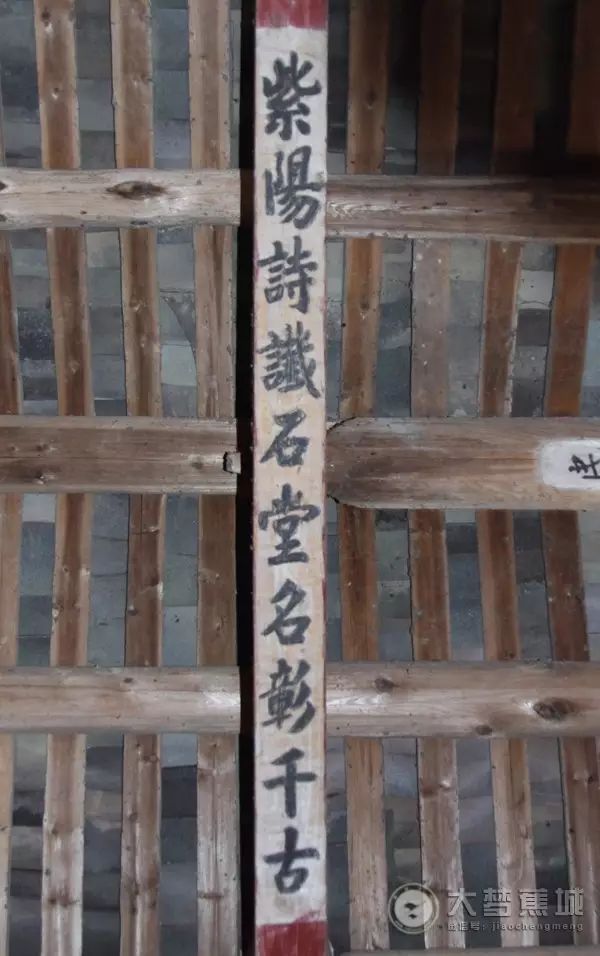 紫陽詩讖石堂名彰千古
大梦蕉城
微信号：jiaochengmeng